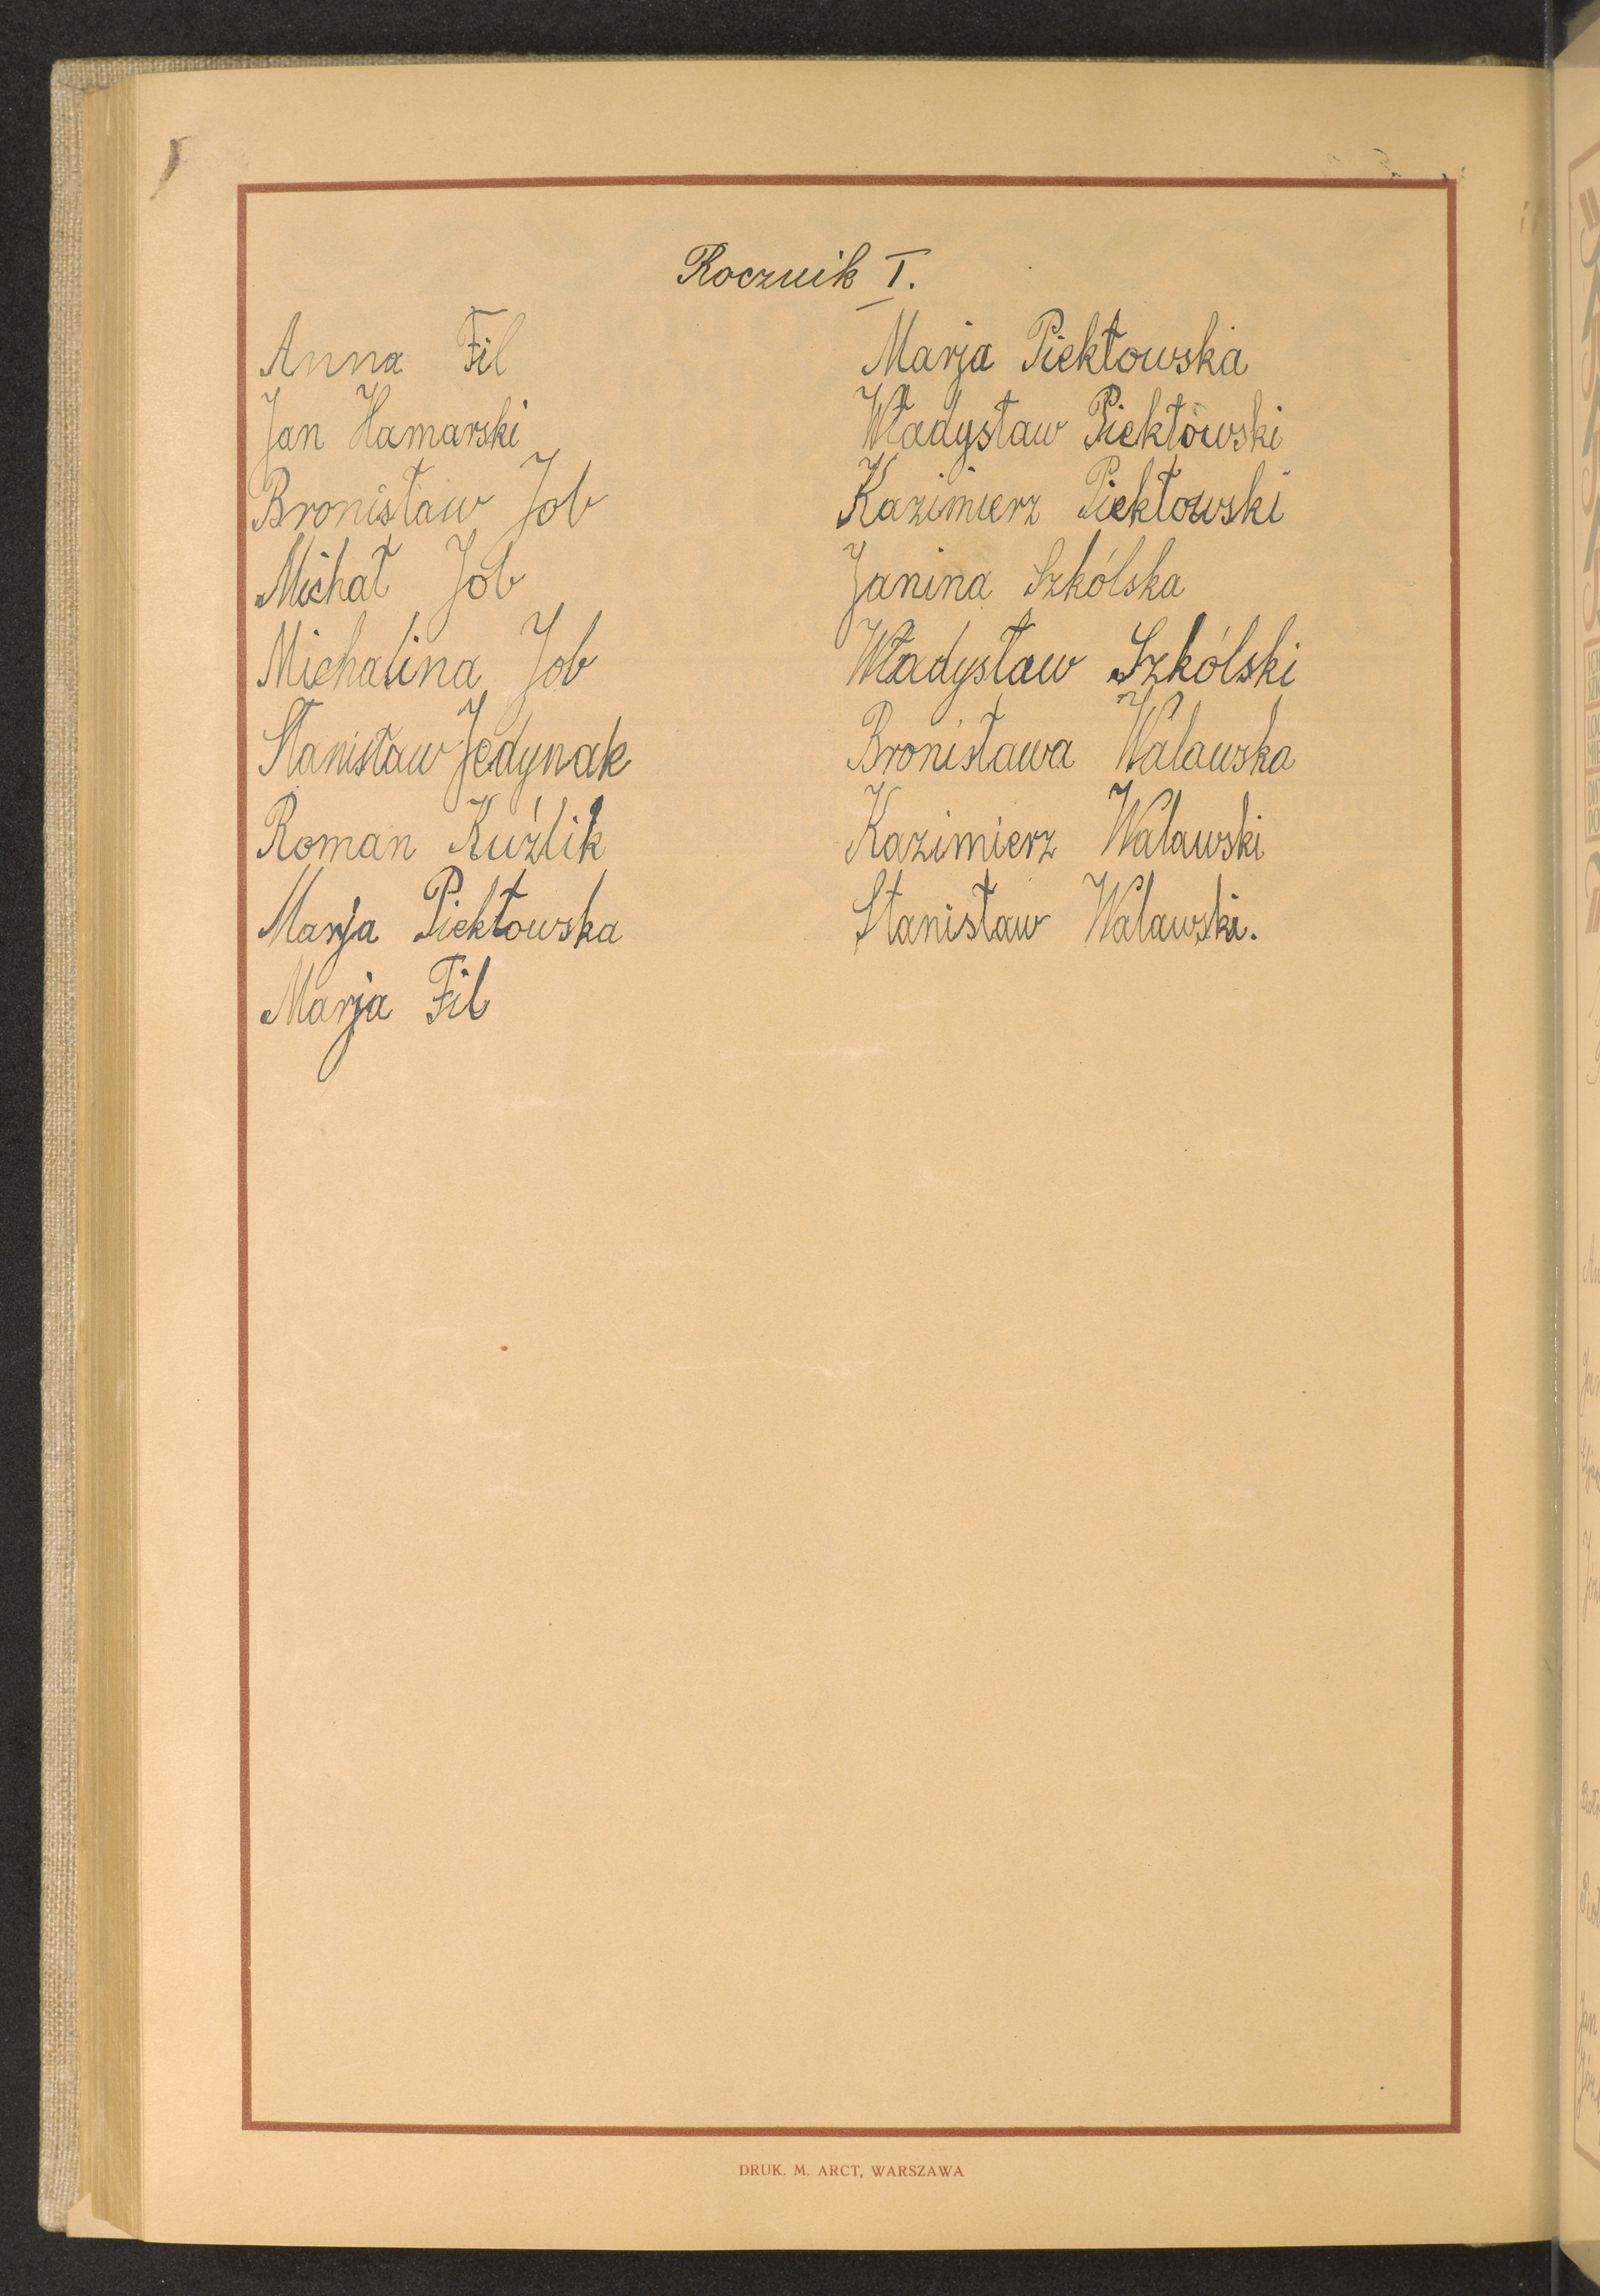 Rocznik I.
Anna Fil
Jan Hamarski
Bronisław Job
Michał Job
Michalina Job
Stanisław Jedynak
Roman Kuźlik
Marja Piekłowska
Marja Fil
Marja Piekłowska
Władysław Piekłowski
Kazimierz Piekłowski
Janina Szkólska
Władysław Szkólski
Bronisława Walawska
Kazimierz Walawski
Stanisław Walawski.
DRUK. M. ARCT, WARSZAWA